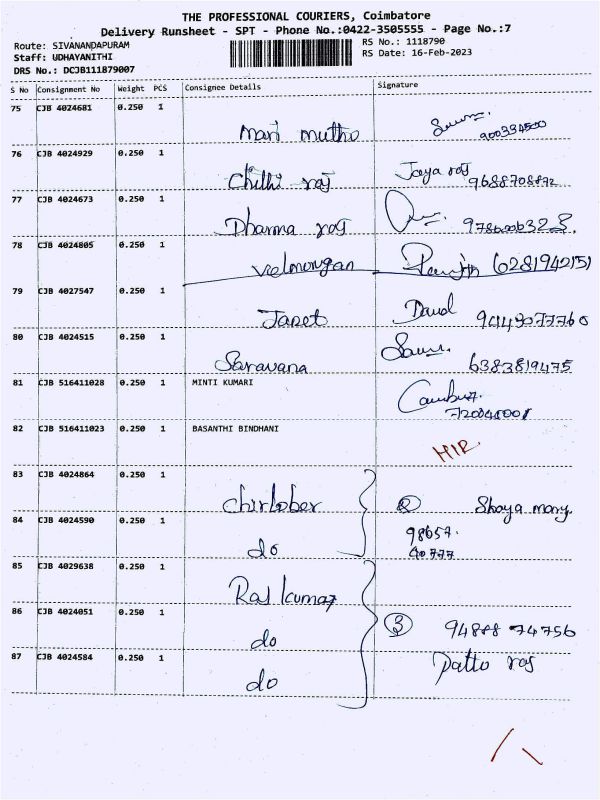 THE PROFESSIONAL COURIERS, Coimbatore
Delivery Runsheet - SPT - Phone No.:0422-3505555 - Page No.:7
Route: SIVANANDAPURAM
Staff: UDHAYANITHI
DRS No.: DCJB111879007
RS No.: 1118790
RS Date: 16-Feb-2023
S No Consignment No Weight PCS Consignee Details Signature
75 CJB 4024681 0.250 1
Mari muthu
76 CJB 4024929 0.250 1
Chithi raj Jaya raj 9688708872
77 CJB 4024673 0.250 1
Dharma raj
78 CJB 4024805 0.250 1
Velmurugan 6281942151
79 CJB 4027547 0.250 1
Janet David 9444907760
80 CJB 4024515 0.250 1
Saravana 6383819475
81 CJB 516411028 0.250 1 MINTI KUMARI
82 CJB 516411023 0.250 1 BASANTHI BINDHANI
83 CJB 4024864 0.250 1
② mary
84 CJB 4024590 0.250 1
98657.
40777
do
85 CJB 4029638 0.250 1
Raj kumar
86 CJB 4024051 0.250 1
③ 94888 74756
do
87 CJB 4024584 0.250 1
raj
do